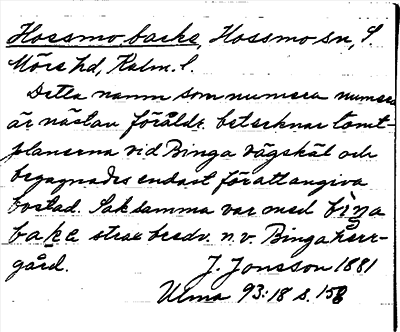 Hossmo backe, Hossmo sn, S.
Möre hd, Kalm. l.
Detta namn som numera numera
är nästan föråldr. betecknar tomt-
planerna vid Binga vägskäl och
begagnades endast för att angiva
bostad. Sak samma var med biṇa
bake strax bredv. n.v. Binga herr-
gård. J. Jonsson 1881
Ulma 93:18 s. 158